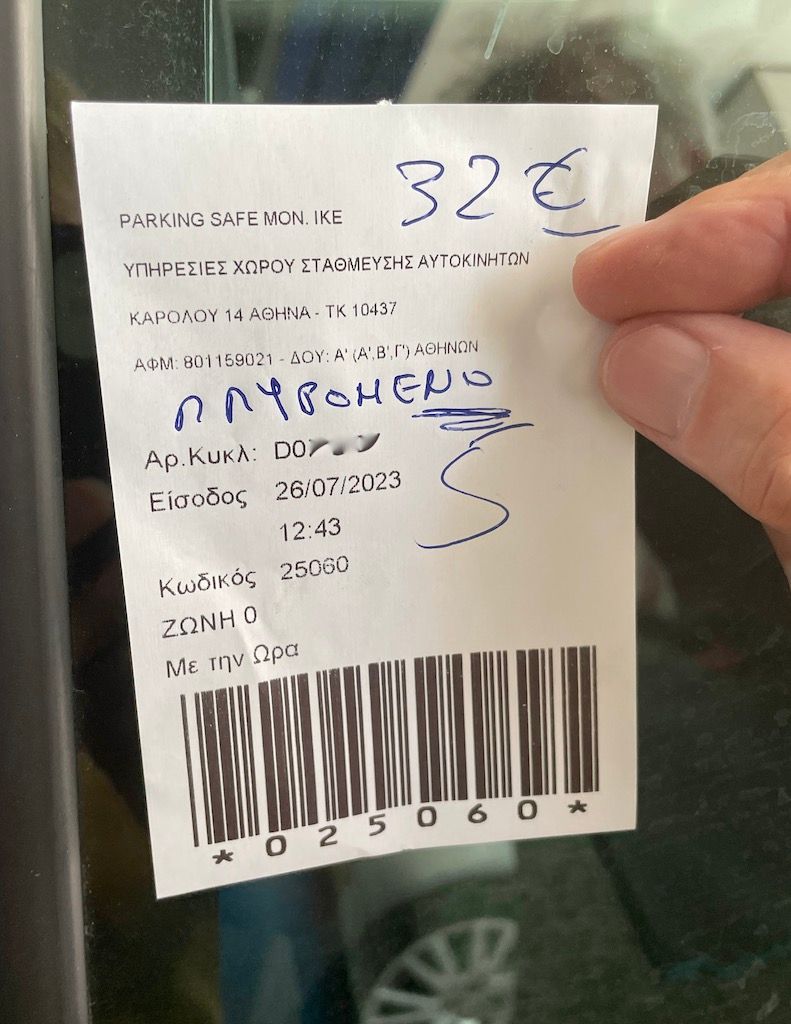 32 €
PARKING SAFE MON. IKE
ΥΠΗΡΕΣΙΕΣ ΧΩΡΟΥ ΣΤΑΘΜΕΥΣΗΣ ΑΥΤΟΚΙΝΗΤΩΝ
ΚΑΡΟΛΟΥ 14 ΑΘΗΝΑ - ΤΚ 10437
ΑΦΜ: 801159021 - ΔΟΥ: Α' (Α',Β',Γ') ΑΘΗΝΩΝ
ΠΛΥΡΟΜΕΝΟ
Αρ.Κυκλ: D0
Είσοδος 26/07/2023
12:43
Κωδικός 25060
ΖΩΝΗ 0
Με την Ωρα
*025060*